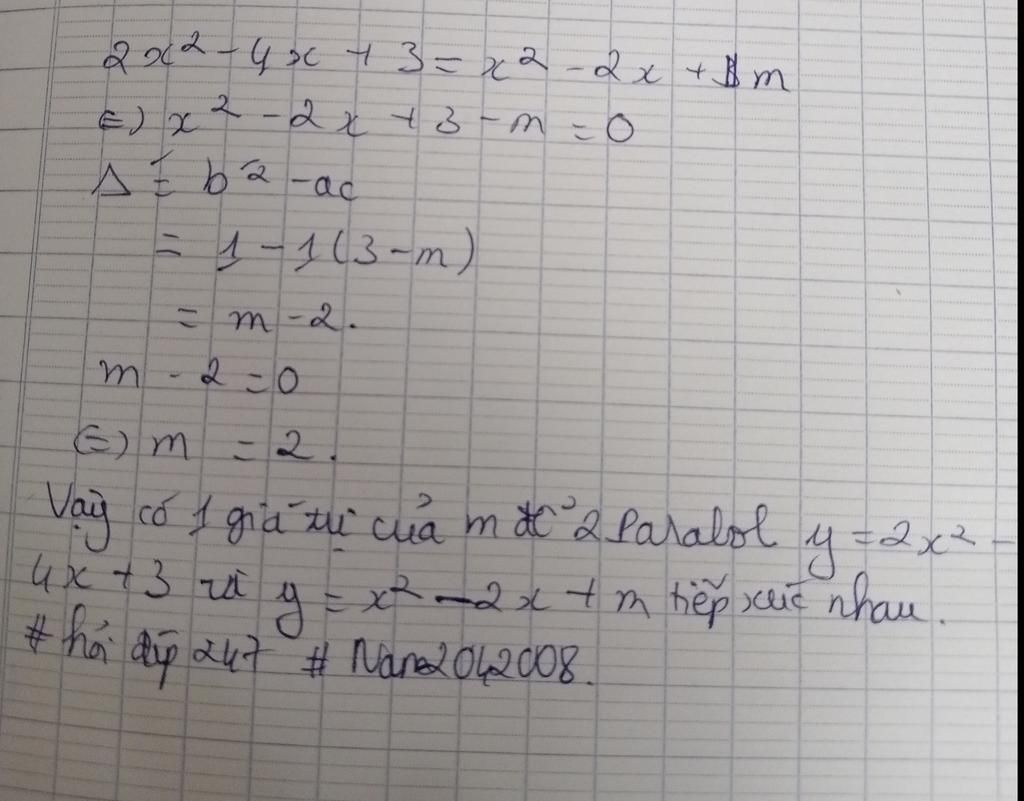 2x² - 4x + 3 = x² - 2x + m
⇔) x² - 2x + 3 - m = 0
Δ' = b'² - ac
= 1 - 1(3 - m)
= m - 2.
m - 2 = 0
⇔) m = 2.
Vậy có 1 giá trị của m để 2 Parabol y = 2x² -
4x + 3 và y = x² - 2x + m tiếp xúc nhau.
# hỏi đáp 247 #